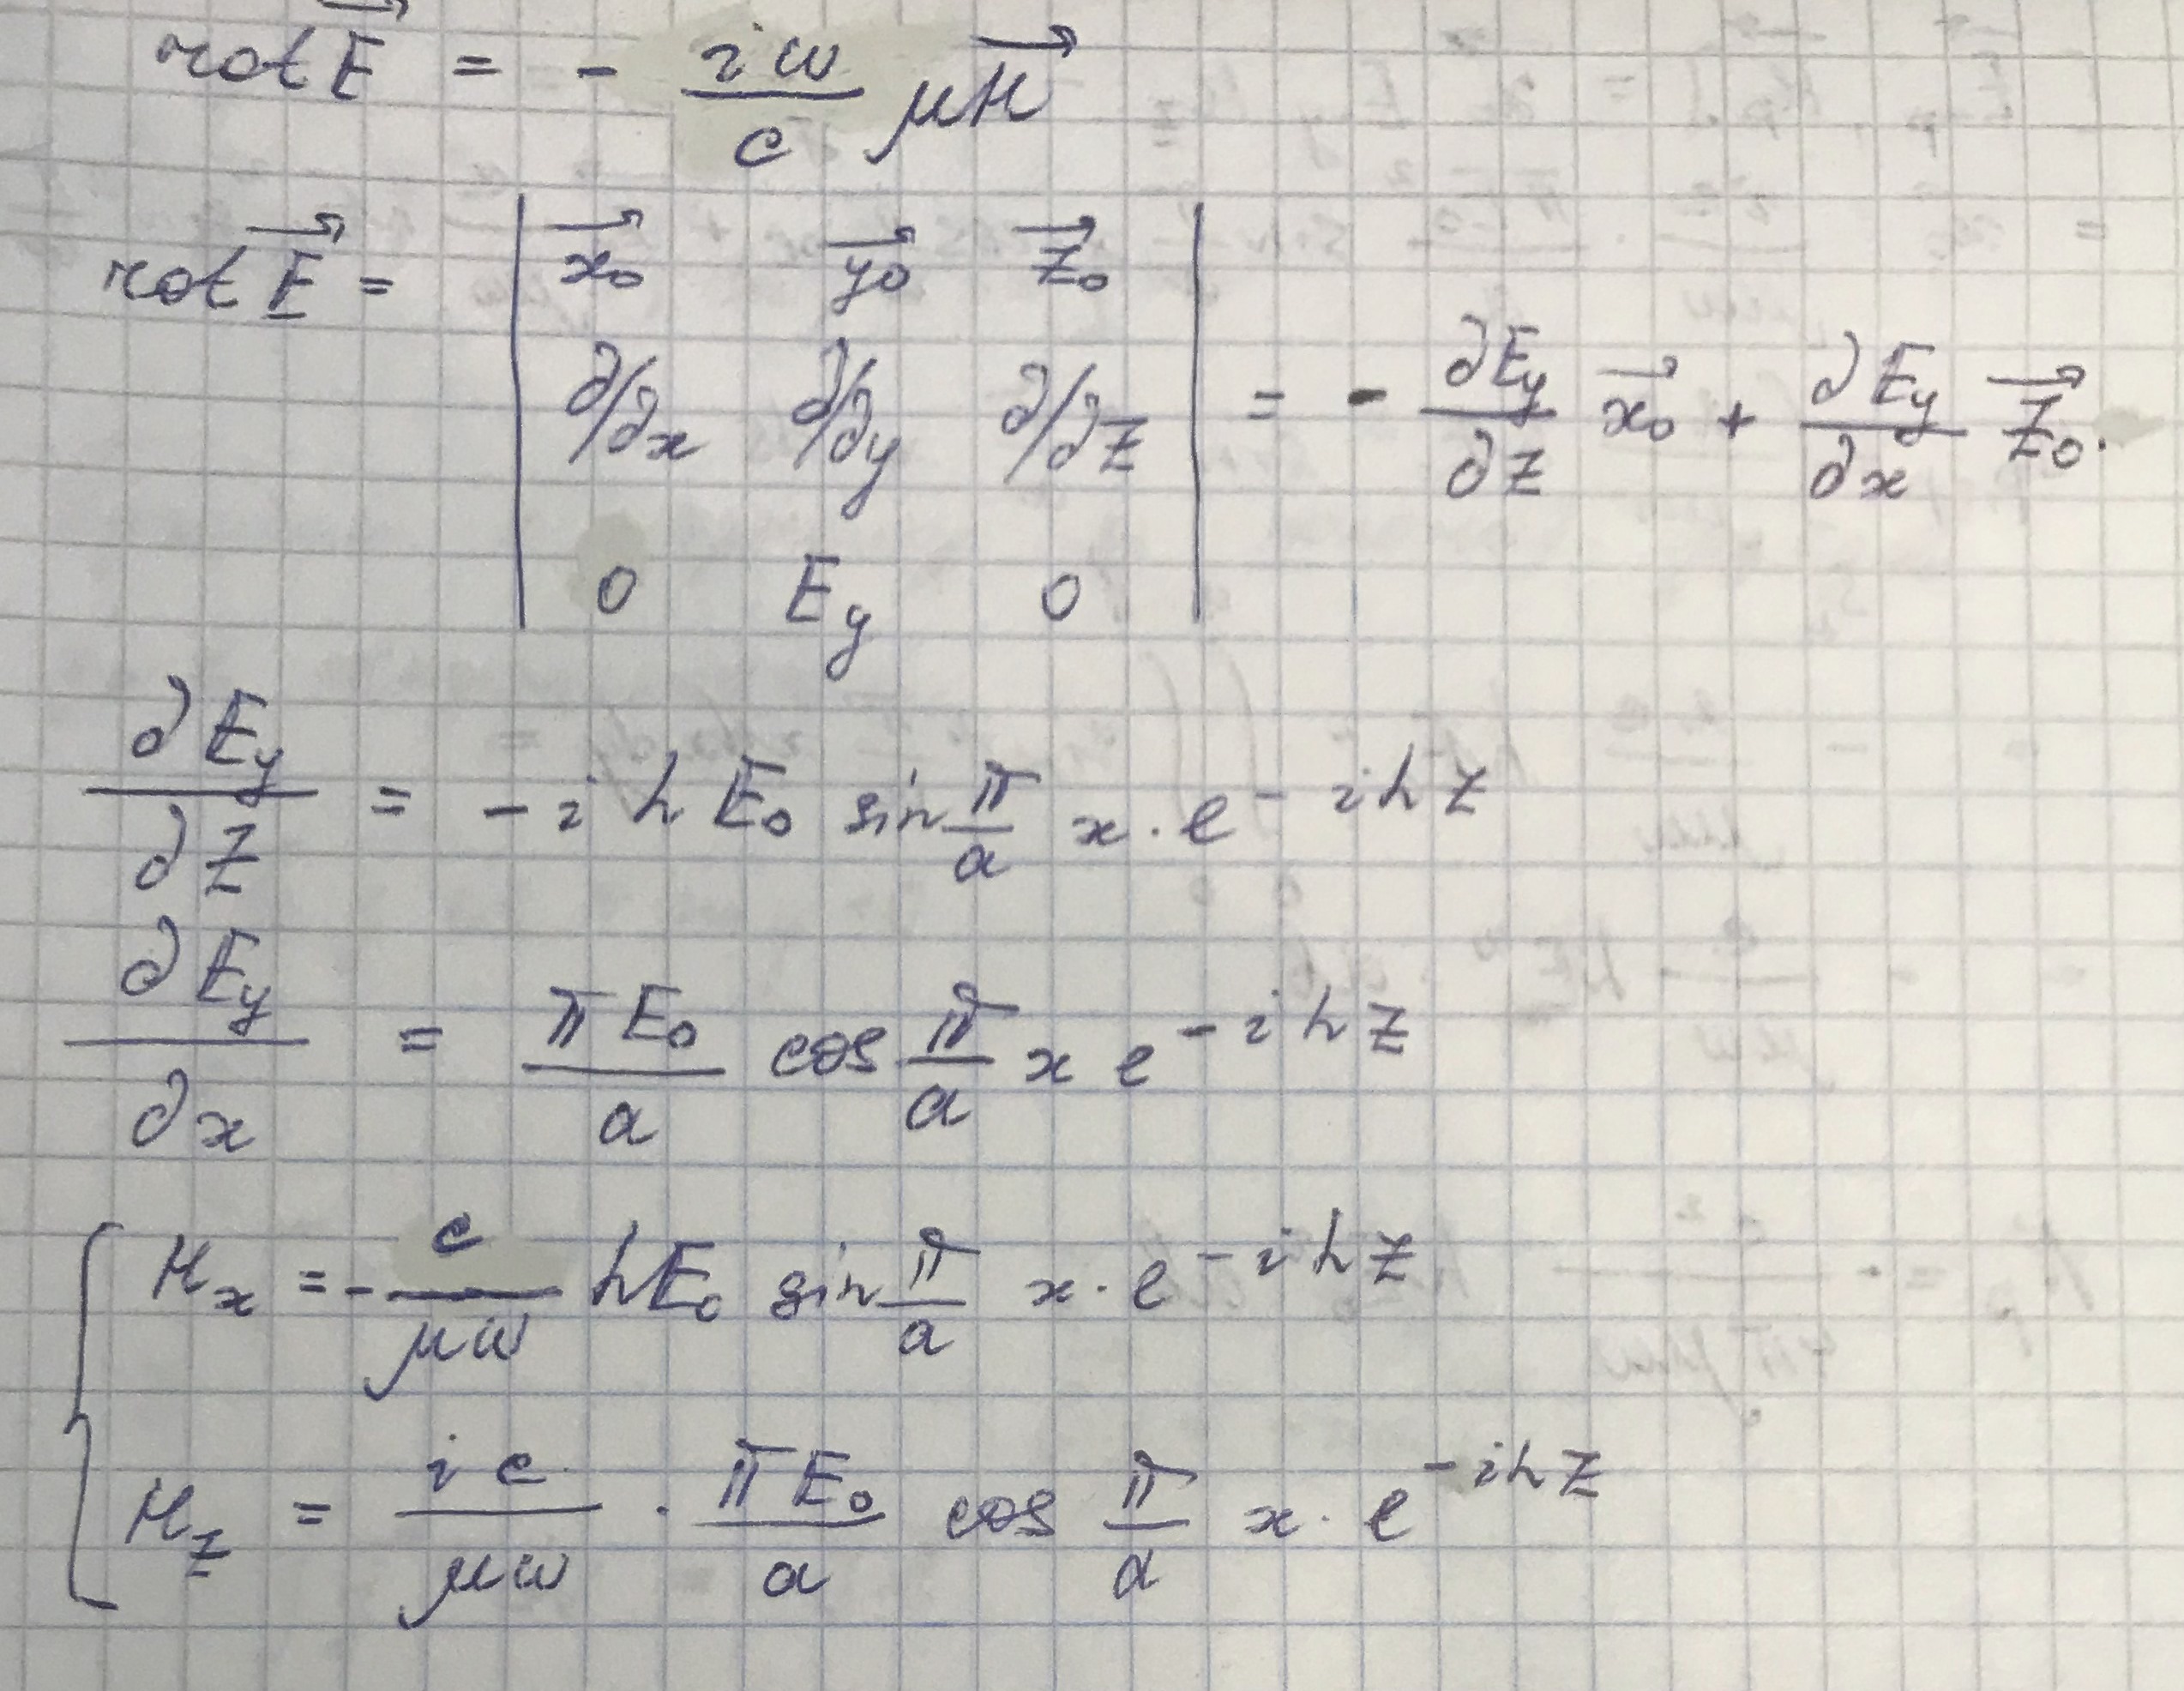 rot E⃗ = - iω/c μH⃗
rot E⃗ = | x⃗₀ y⃗₀ z⃗₀ |
| ∂/∂x ∂/∂y ∂/∂z | = - ∂Ey/∂z x⃗₀ + ∂Ey/∂x z⃗₀.
| 0 Ey 0 |
∂Ey/∂z = - i h E₀ sin π/a x · e^(- i h z)
∂Ey/∂x = πE₀/a cos π/a x e^(- i h z)
{ Hx = - c/μω hE₀ sin π/a x · e^(- i h z)
Hz = i c/μω · πE₀/a cos π/a x · e^(- i h z)